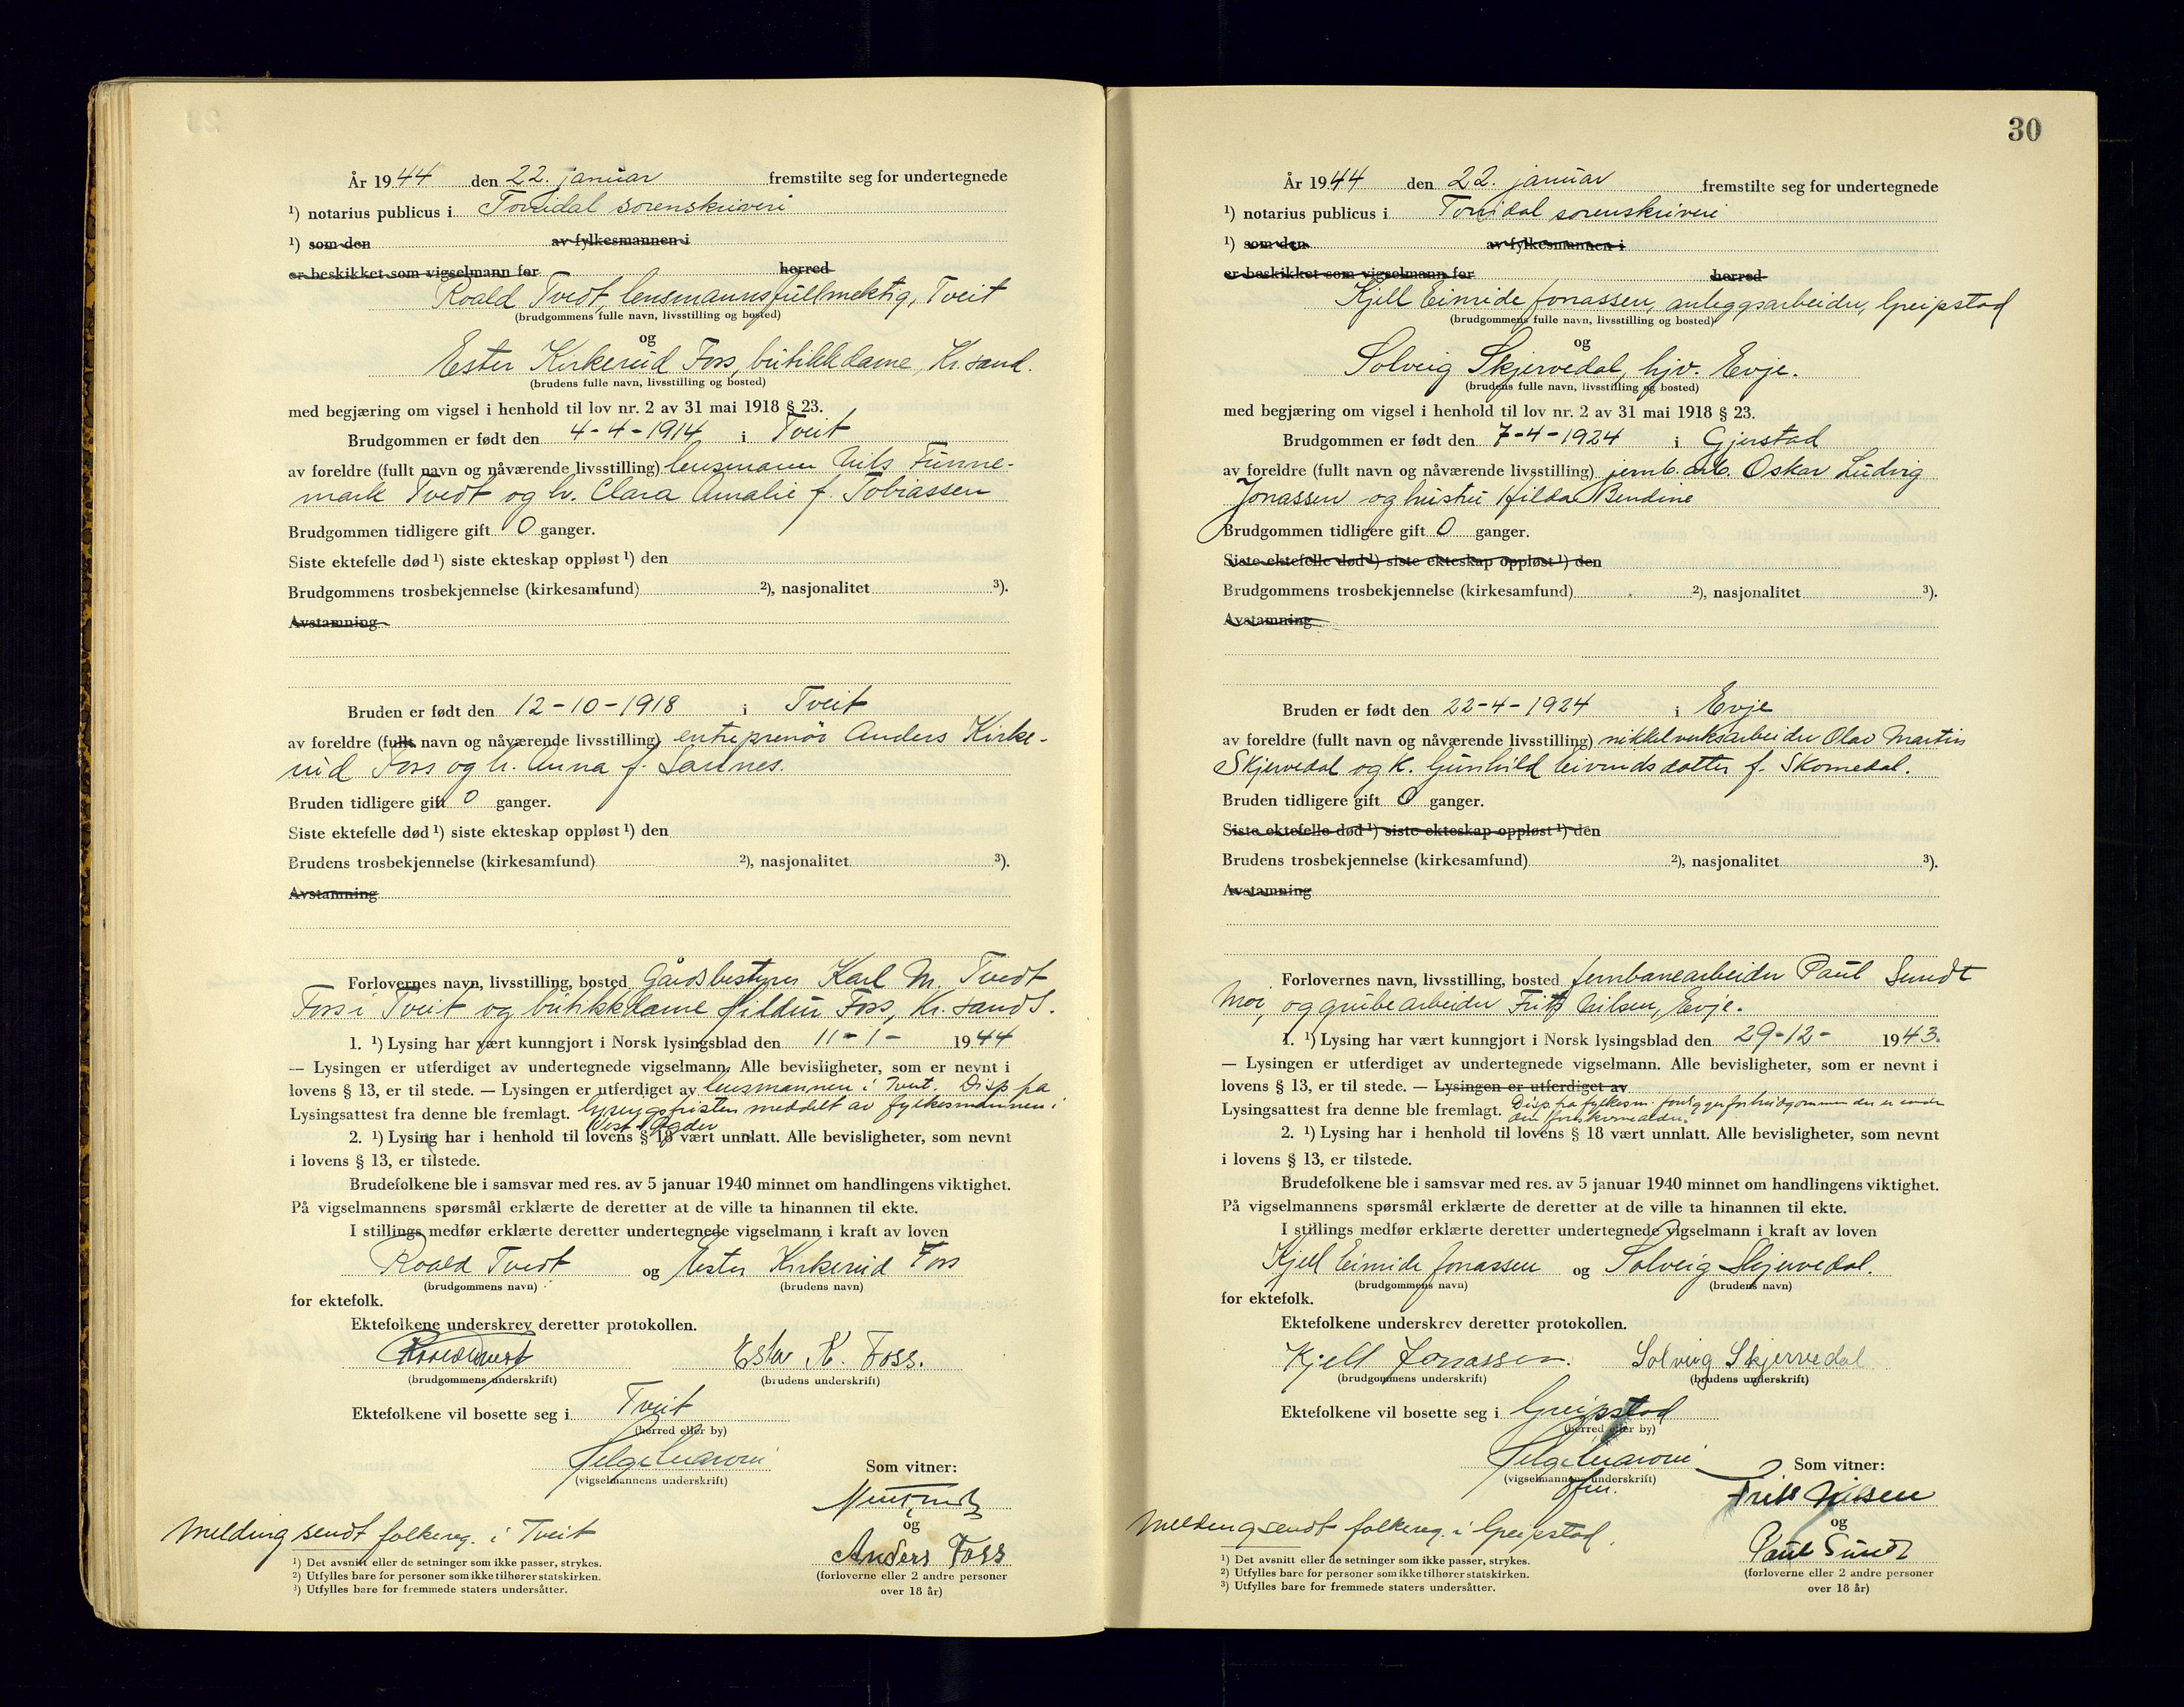 År 1944 den 22. januar fremstilte seg for undertegnede
¹) notarius publicus i Torridal sorenskriveri
¹) som den av fylkesmannen i
er beskikket som vigselmann for herred
Roald Tvedt, lensmannsfullmektig, Tveit
(brudgommens fulle navn, livsstilling og bosted)
og
Ester Kirkerud Foss, butikkdame, Kr.sand.
(brudens fulle navn, livsstilling og bosted)
med begjæring om vigsel i henhold til lov nr. 2 av 31 mai 1918 § 23.
Brudgommen er født den 4-4-1914 i Tveit
av foreldre (fullt navn og nåværende livsstilling) lensmann Nils Tunne-
mark Tvedt og h. Clara Amalie f. Tobiassen
Brudgommen tidligere gift 0 ganger.
Siste ektefelle død ¹) siste ekteskap oppløst ¹) den
Brudgommens trosbekjennelse (kirkesamfund) ²), nasjonalitet ³).
Avstamning
Bruden er født den 12-10-1918 i Tveit
av foreldre (fullt navn og nåværende livsstilling) entreprenør Anders Kirke-
rud Foss og h. Anna f.
Bruden tidligere gift 0 ganger.
Siste ektefelle død ¹) siste ekteskap oppløst ¹) den
Brudens trosbekjennelse (kirkesamfund) ²), nasjonalitet ³).
Avstamning
Forlovernes navn, livsstilling, bosted Gårdsbestyrer Karl M. Tvedt
Foss i Tveit og butikkdame Hildur Foss, Kr.sand S.
1. ¹) Lysing har vært kunngjort i Norsk lysingsblad den 11-1- 1944
— Lysingen er utferdiget av undertegnede vigselmann. Alle bevisligheter, som er nevnt i
lovens § 13, er til stede. — Lysingen er utferdiget av lensmannen i Tveit. Disp. fra
Lysingsattest fra denne ble fremlagt. lysingsfristen meddelt av fylkesmannen i
Vest Agder
2. ¹) Lysing har i henhold til lovens § 18 vært unnlatt. Alle bevisligheter, som nevnt
i lovens § 13, er tilstede.
Brudefolkene ble i samsvar med res. av 5 januar 1940 minnet om handlingens viktighet.
På vigselmannens spørsmål erklærte de deretter at de ville ta hinannen til ekte.
I stillings medfør erklærte deretter undertegnede vigselmann i kraft av loven
Roald Tvedt og Ester Kirkerud Foss
(brudgommens navn) (brudens navn)
for ektefolk.
Ektefolkene underskrev deretter protokollen.
Roald Tvedt Ester K. Foss.
(brudgommens underskrift) (brudens underskrift)
Ektefolkene vil bosette seg i Tveit
(herred eller by)
(vigselmannens underskrift)
Som vitner:
og
Anders Foss
(forloverne eller 2 andre personer
over 18 år)
Melding sendt folkereg. i Tveit
¹) Det avsnitt eller de setninger som ikke passer, strykes.
²) Utfylles bare for personer som ikke tilhører statskirken.
³) Utfylles bare for fremmede staters undersåtter.
30
År 1944 den 22. januar fremstilte seg for undertegnede
¹) notarius publicus i Torridal sorenskriveri
¹) som den av fylkesmannen i
er beskikket som vigselmann for herred
Kjell Eimide Jonassen, anleggsarbeider, Greipstad
(brudgommens fulle navn, livsstilling og bosted)
og
Solveig Skjervedal, hjv. Evje.
(brudens fulle navn, livsstilling og bosted)
med begjæring om vigsel i henhold til lov nr. 2 av 31 mai 1918 § 23.
Brudgommen er født den 7-4-1924 i Gjerstad
av foreldre (fullt navn og nåværende livsstilling) jernb.arb. Oskar Ludvig
Jonassen og hustru Hilda Bendine
Brudgommen tidligere gift 0 ganger.
Siste ektefelle død ¹) siste ekteskap oppløst ¹) den
Brudgommens trosbekjennelse (kirkesamfund) ²), nasjonalitet ³).
Avstamning
Bruden er født den 22-4-1924 i Evje
av foreldre (fullt navn og nåværende livsstilling) nikkelverksarbeider Olav Martin
Skjervedal og k. Gunhild Eivindsdotter f. Skomedal.
Bruden tidligere gift 0 ganger.
Siste ektefelle død ¹) siste ekteskap oppløst ¹) den
Brudens trosbekjennelse (kirkesamfund) ²), nasjonalitet ³).
Avstamning
Forlovernes navn, livsstilling, bosted Jernbanearbeider Paul Sundt
Moi, og grubearbeider Fritz Nilsen, Evje.
1. ¹) Lysing har vært kunngjort i Norsk lysingsblad den 29-12- 1943.
— Lysingen er utferdiget av undertegnede vigselmann. Alle bevisligheter, som er nevnt i
lovens § 13, er til stede. — Lysingen er utferdiget av
Lysingsattest fra denne ble fremlagt. Disp. fra fylkesm. foreligger for brudgommen der er under
2. ¹) Lysing har i henhold til lovens § 18 vært unnlatt. Alle bevisligheter, som nevnt
i lovens § 13, er tilstede.
Brudefolkene ble i samsvar med res. av 5 januar 1940 minnet om handlingens viktighet.
På vigselmannens spørsmål erklærte de deretter at de ville ta hinannen til ekte.
I stillings medfør erklærte deretter undertegnede vigselmann i kraft av loven
Kjell Eimide Jonassen og Solveig Skjervedal.
(brudgommens navn) (brudens navn)
for ektefolk.
Ektefolkene underskrev deretter protokollen.
Kjell Jonassen. Solveig Skjervedal
(brudgommens underskrift) (brudens underskrift)
Ektefolkene vil bosette seg i Greipstad
(herred eller by)
(vigselmannens underskrift)
Som vitner:
Fritz Nilsen
og
Paul Sundt
(forloverne eller 2 andre personer
over 18 år)
Melding sendt folkereg. i Greipstad.
¹) Det avsnitt eller de setninger som ikke passer, strykes.
²) Utfylles bare for personer som ikke tilhører statskirken.
³) Utfylles bare for fremmede staters undersåtter.